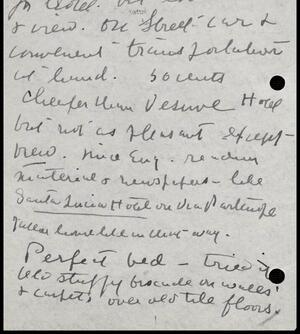 & view. On Street-car &
convenient transportation
at hand. 50 cents
cheaper than Vesuve Hotel
but not as pleasant except
view. Nice Eng. reading
material & newspapers - like
Santa Lucia Hotel on Via Partenope
home like in that way.
Perfect bed - tried it
old stuffy brocade on walls
& carpets over old tile floors.